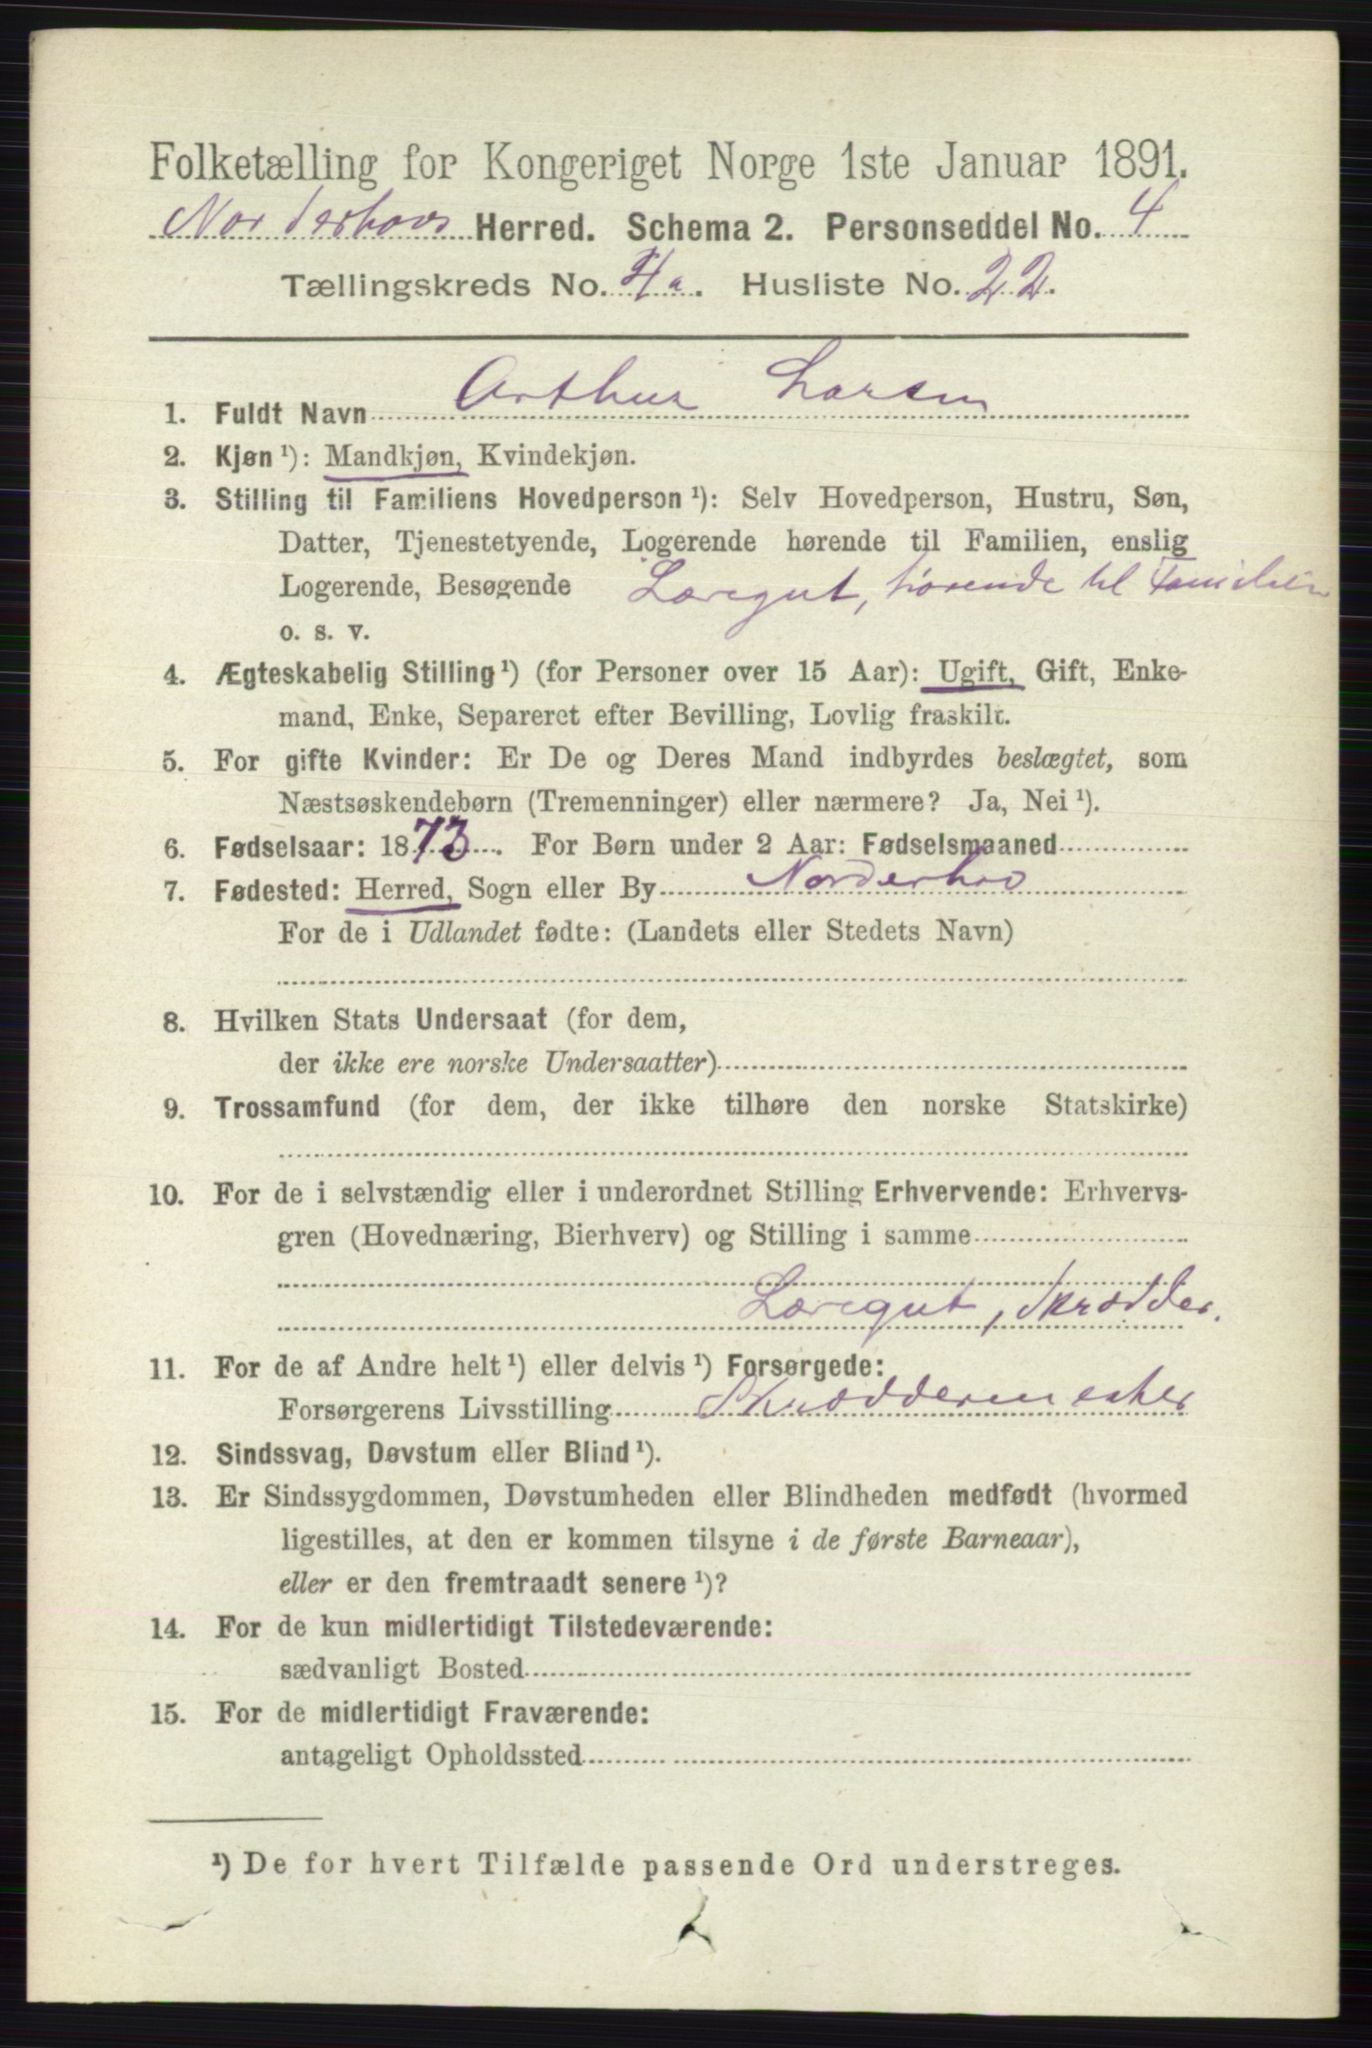 Folketælling for Kongeriget Norge 1ste Januar 1891.
Norderhovs Herred. Schema 2. Personseddel No. 4
Tællingskreds No. 4a. Husliste No. 22.
1. Fuldt Navn Arthur Larsen
2. Kjøn ¹): Mandkjøn, Kvindekjøn.
3. Stilling til Familiens Hovedperson ¹): Selv Hovedperson, Hustru, Søn,
Datter, Tjenestetyende, Logerende hørende til Familien, enslig
Logerende, Besøgende Læregut, hørende til Familien
o. s. v.
4. Ægteskabelig Stilling ¹) (for Personer over 15 Aar): Ugift, Gift, Enke-
mand, Enke, Separeret efter Bevilling, Lovlig fraskilt.
5. For gifte Kvinder: Er De og Deres Mand indbyrdes beslægtet, som
Næstsøskendebørn (Tremenninger) eller nærmere? Ja, Nei ¹).
6. Fødselsaar: 1873. For Børn under 2 Aar: Fødselsmaaned
7. Fødested: Herred, Sogn eller By Norderhov
For de i Udlandet fødte: (Landets eller Stedets Navn)
8. Hvilken Stats Undersaat (for dem,
der ikke ere norske Undersaatter)
9. Trossamfund (for dem, der ikke tilhøre den norske Statskirke)
10. For de i selvstændig eller i underordnet Stilling Erhvervende: Erhvervs-
gren (Hovednæring, Bierhverv) og Stilling i samme
Læregut, Skrædder.
11. For de af Andre helt ¹) eller delvis ¹) Forsørgede:
Forsørgerens Livsstilling Skræddermester
12. Sindssvag, Døvstum eller Blind ¹).
13. Er Sindssygdommen, Døvstumheden eller Blindheden medfødt (hvormed
ligestilles, at den er kommen tilsyne i de første Barneaar),
eller er den fremtraadt senere ¹)?
14. For de kun midlertidigt Tilstedeværende:
sædvanligt Bosted
15. For de midlertidigt Fraværende:
antageligt Opholdssted
¹) De for hvert Tilfælde passende Ord understreges.